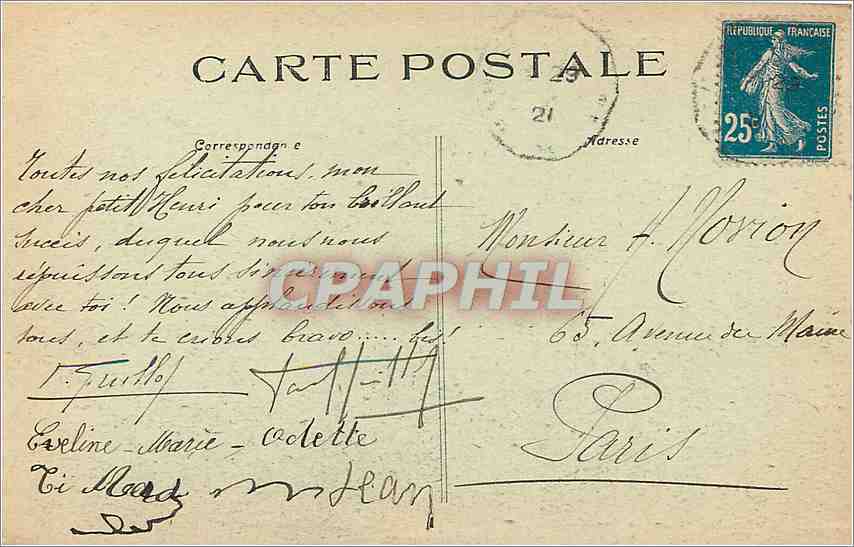 CARTE POSTALE
RÉPUBLIQUE FRANÇAISE
25c
POSTES
23
21
Correspondance
Adresse
Toutes nos félicitations, mon
cher petit Henri pour ton brillant
succès, duquel nous nous
réjouissons tous sincèrement
avec toi ! Nous applaudissons
tous, et te crions bravo..... bis!
Monsieur H. Novion
65, Avenue du Maine
Paris
Eveline - Marie - Odette
Ti
Jean
CPAPHIL